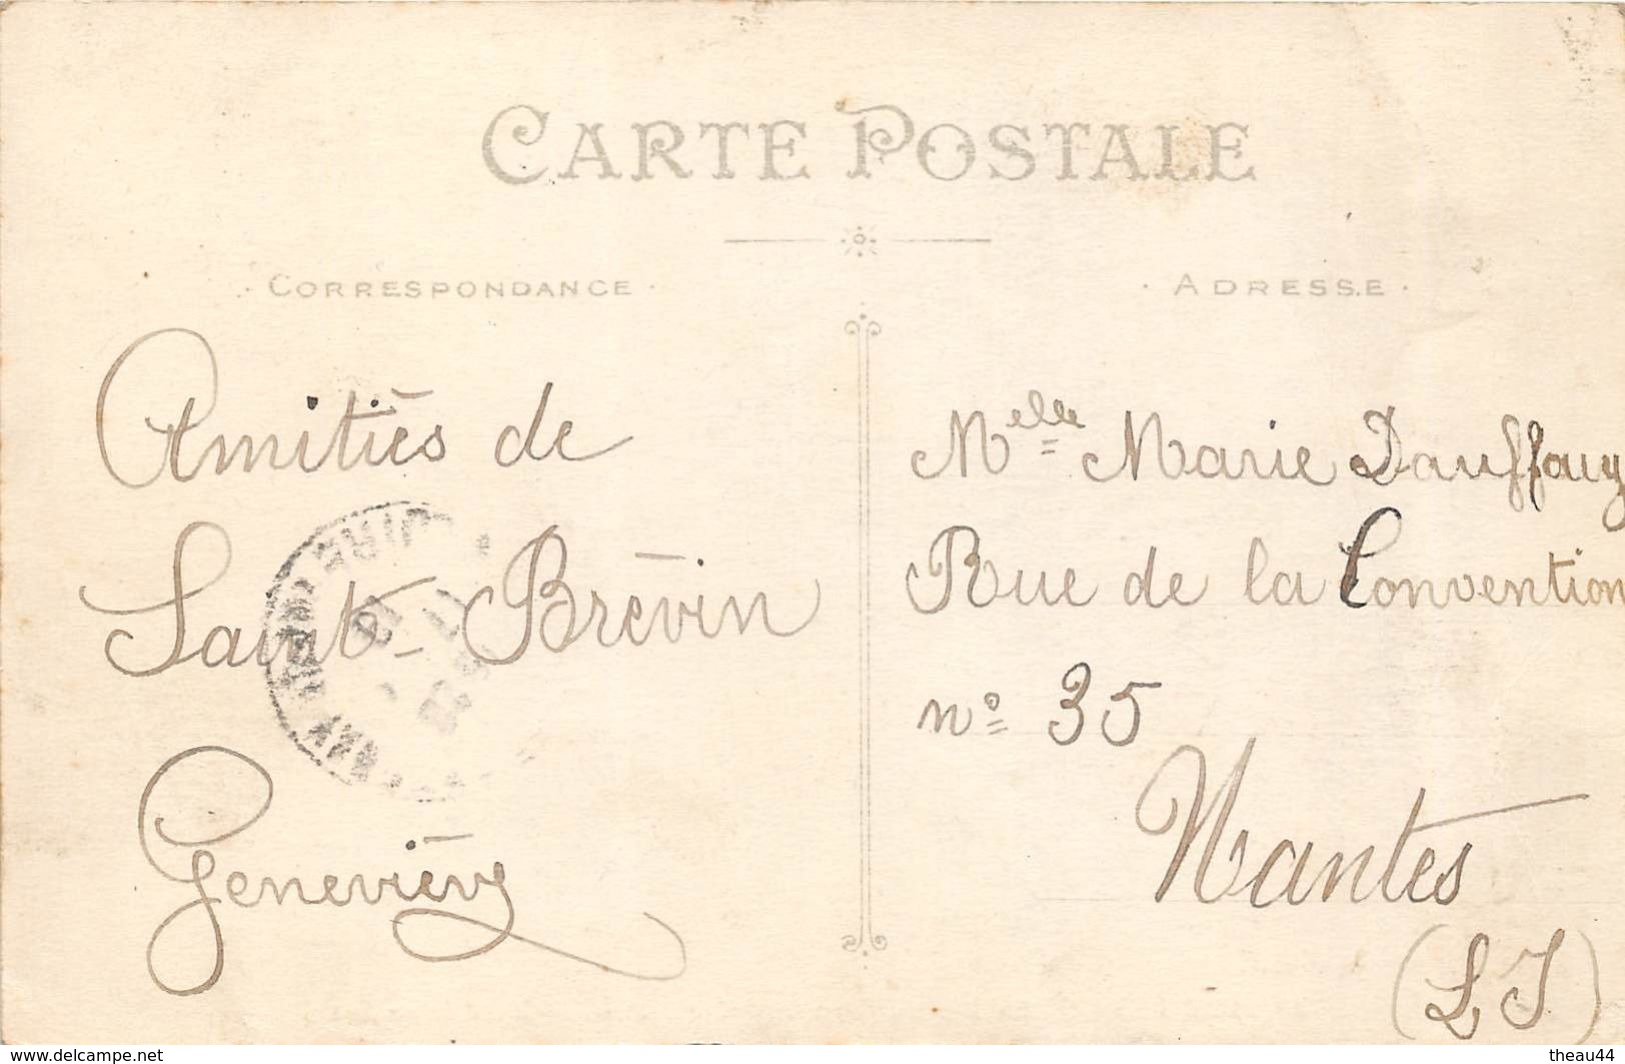 CARTE POSTALE
CORRESPONDANCE
Amitiés de
Saint-Brévin
Geneviève
ADRESSE
Melle Marie Dauffouy
Rue de la Convention
nº 35
Nantes
(L I)
www.delcampe.net
theau44